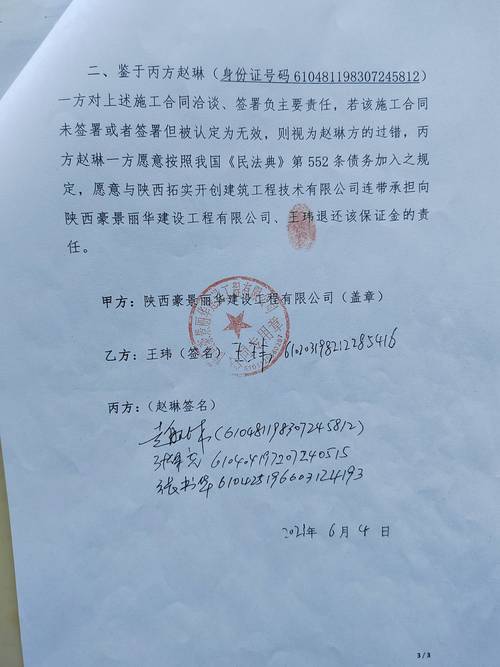 二、鉴于丙方赵琳（身份证号码610481198307245812）
一方对上述施工合同洽谈、签署负主要责任，若该施工合同
未签署或者签署但被认定为无效，则视为赵琳方的过错，丙
方赵琳一方愿意按照我国《民法典》第 552 条债务加入之规
定，愿意与陕西拓实开创建筑工程技术有限公司连带承担向
陕西豪景丽华建设工程有限公司、王玮退还该保证金的责
任。
甲方：陕西豪景丽华建设工程有限公司（盖章）
乙方：王玮（签名）王玮 610203198212285416
丙方：（赵琳签名）
(610481198307245812)
610404197207240515
610425196603124193
2021年 6月 4日
3/3